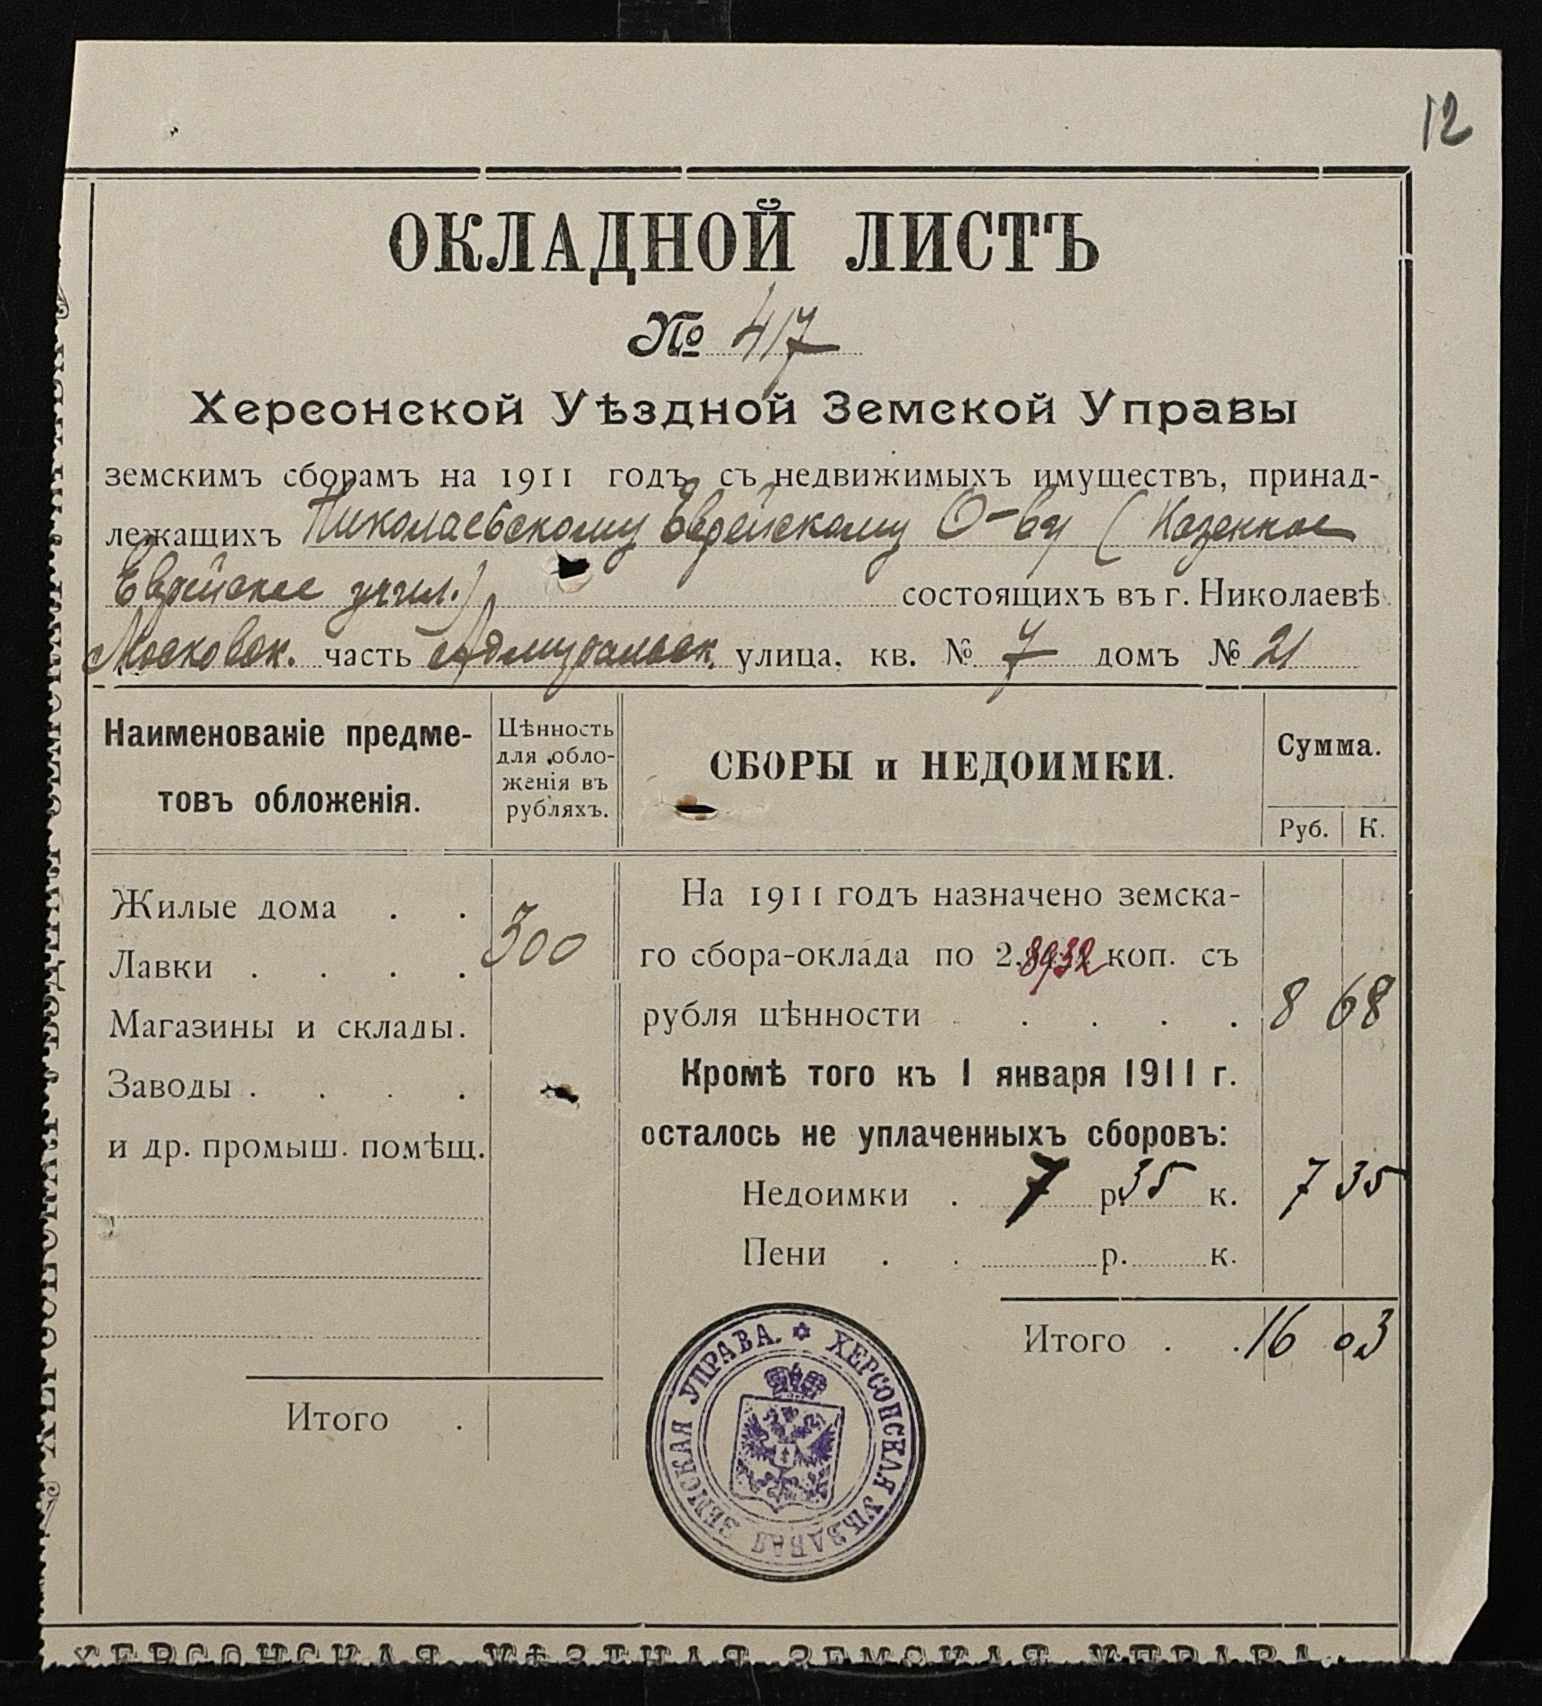 12
ОКЛАДНОЙ ЛИСТЪ
№ 417
Херсонской Уѣздной Земской Управы
земскимъ сборамъ на 1911 годъ съ недвижимыхъ имуществъ, принад-
лежащихъ Николаевскому Еврейскому О-ву (Казенное
Еврейское учил.) состоящихъ въ г. Николаевѣ
Московск. часть Адмиральск. улица, кв. № 7 домъ № 21
Наименованіе предме-
товъ обложенія.
Цѣнность
для обло-
женія въ
рубляхъ.
СБОРЫ и НЕДОИМКИ.
Сумма.
Руб. К.
Жилые дома . .
Лавки . . . .
300
Магазины и склады.
Заводы . . . .
и др. промыш. помѣщ.
Итого .
На 1911 годъ назначено земска-
го сбора-оклада по 2.8932 коп. съ
рубля цѣнности . . . . 8 68
Кромѣ того къ 1 января 1911 г.
осталось не уплаченныхъ сборовъ:
Недоимки . 7 р. 35 к. 7 35
Пени . . р. к.
Итого . . 16 03
ХЕРСОНСКАЯ УѢЗДНАЯ ЗЕМСКАЯ УПРАВА.
ХЕРСОНСКАЯ УѢЗДНАЯ ЗЕМСКАЯ УПРАВА.
ХЕРСОНСКАЯ УѢЗДНАЯ ЗЕМСКАЯ УПРАВА